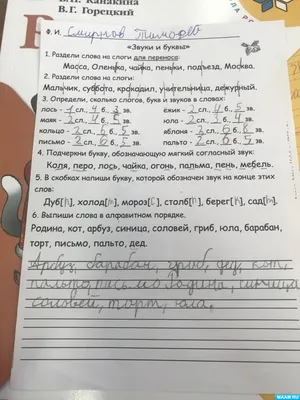 Канакина
В.Г. Горецкий
Ф. И. Смирнов Тимофей
«Звуки и буквы»
1. Раздели слова на слоги для переноса.
Масса, Оленька, чайка, пеньки, подъезд, Москва.
2. Раздели слова на слоги.
Мальчик, суббота, крокодил, учительница, дежурный.
3. Определи, сколько слогов, букв и звуков в словах:
лось - сл. 4 б. 3 зв. ёжик - 2 сл. 4 б. 5 зв.
маяк - 2 сл. 4 б. 5 зв. юла - 2 сл. б. 4 зв.
кольцо - 2 сл. 6 б. 5 зв. яблоня - сл. 6 б. зв.
письмо - 2 сл. 6 б. 5 зв. пальто - 2 сл. 6 б. 5 зв.
4. Подчеркни букву, обозначающую мягкий согласный звук:
Коля, перо, лось, чайка, огонь, пальма, пень, мебель.
5. В скобках напиши букву, которой обозначен звук на конце этих
слов:
Дуб[п], холод[т], мороз[с], столб[п], берег[к], сад[т].
6. Выпиши слова в алфавитном порядке.
Родина, кот, арбуз, синица, соловей, гриб, юла, барабан,
торт, письмо, пальто, дед.
Арбуз, барабан, гриб, дед, кот,
пальто, письмо Родина, синица
соловей, торт, юла.
MAAM.RU